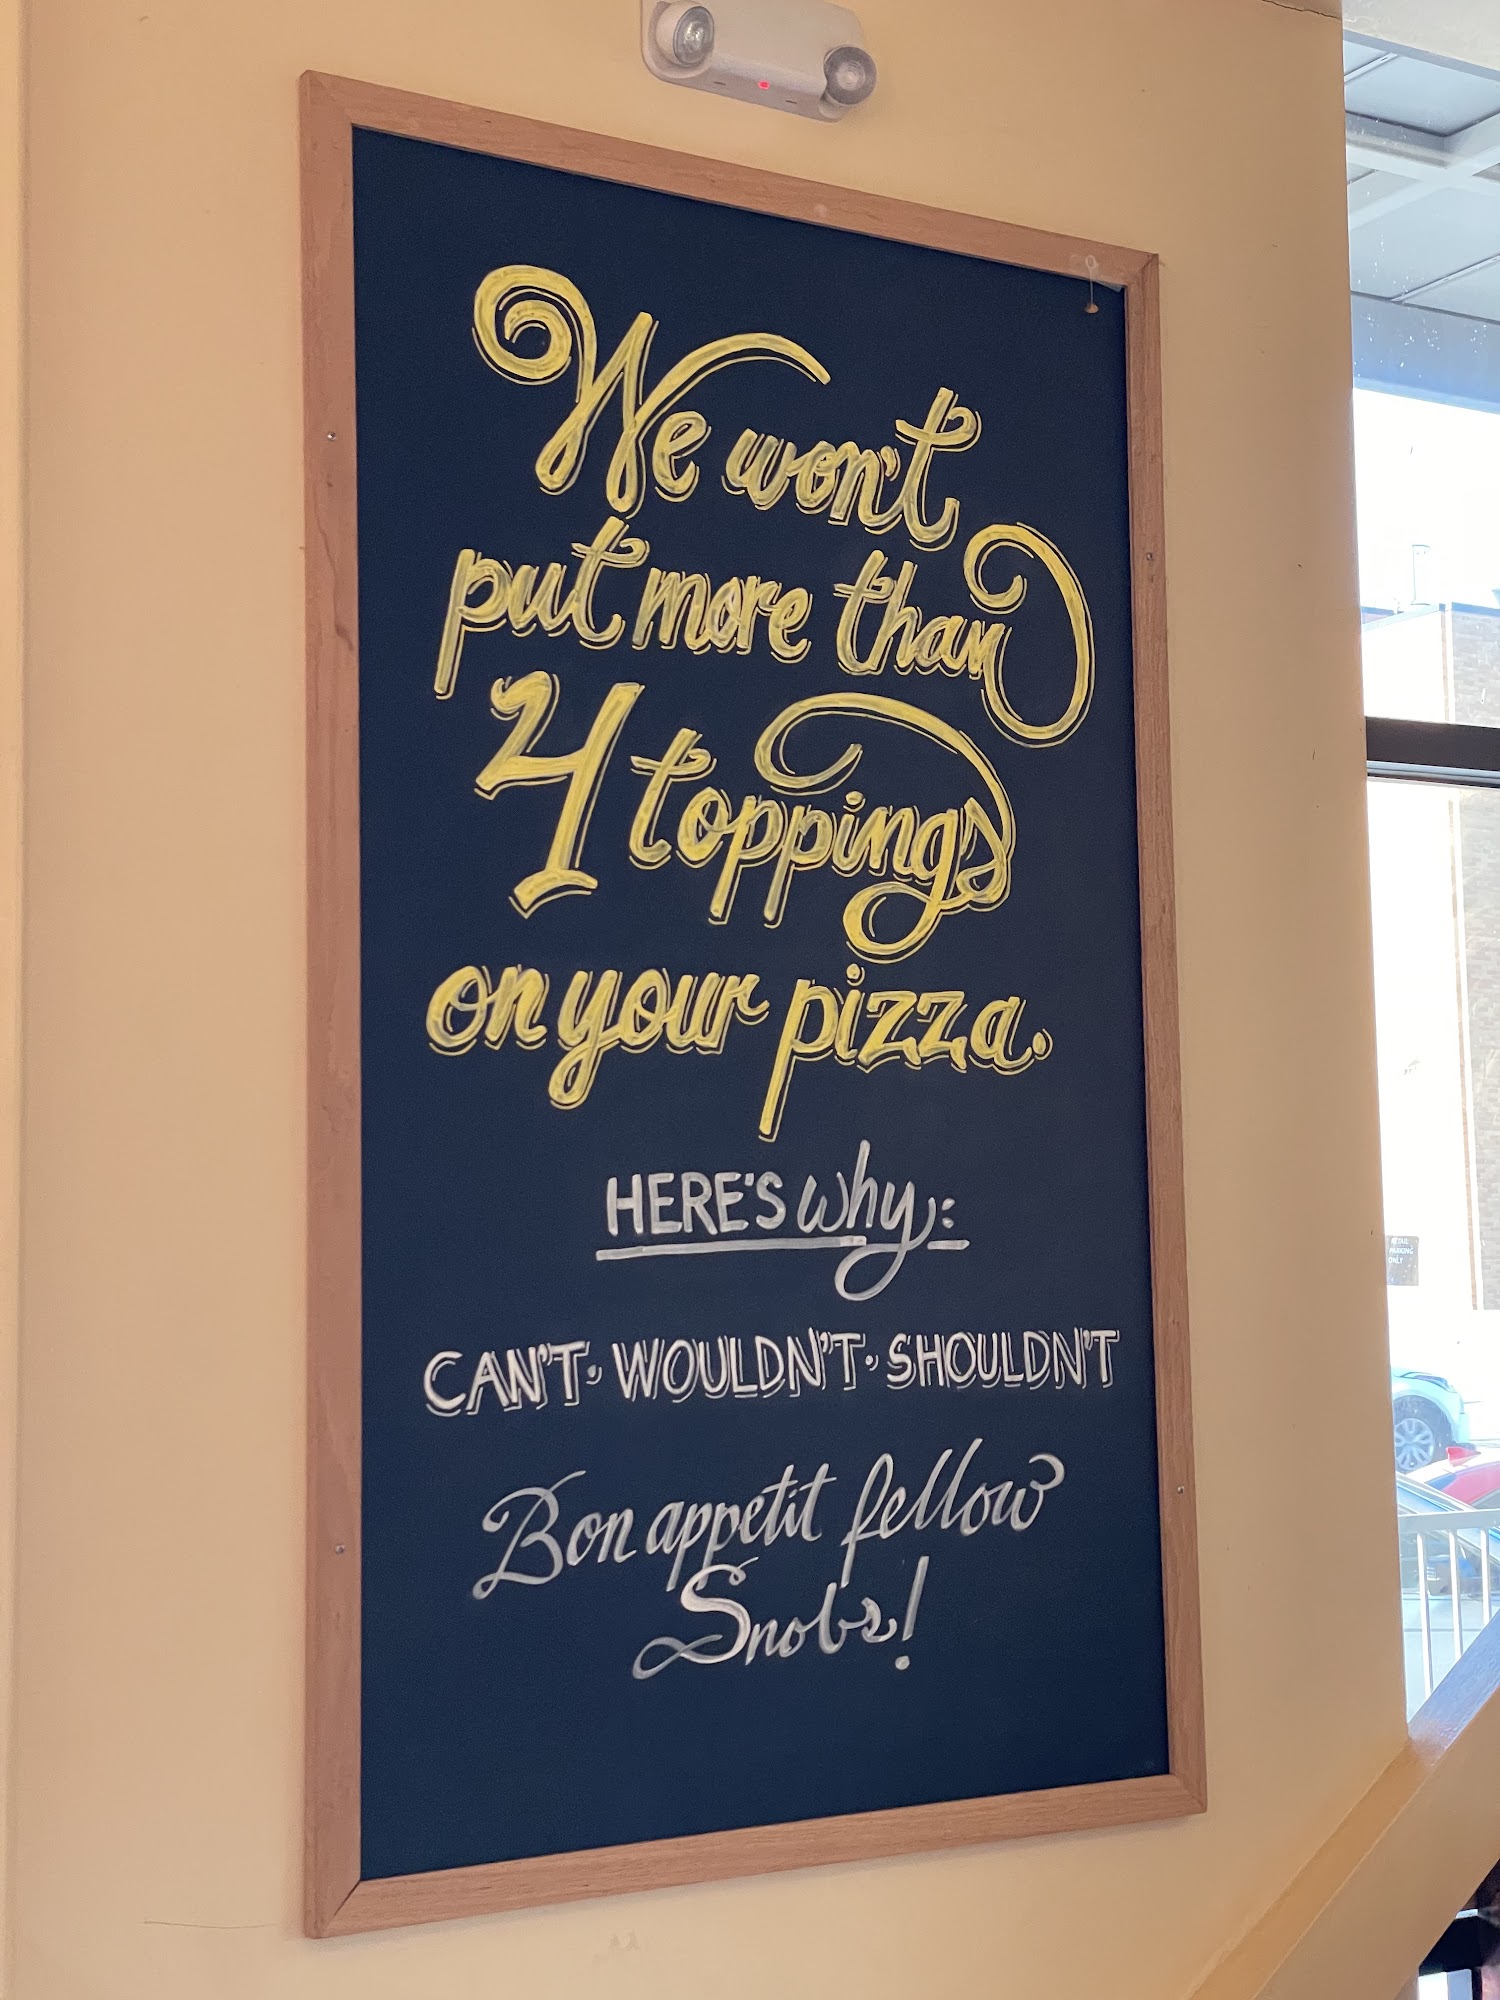 We won't
put more than
4 toppings
on your pizza.
HERE'S why:
CAN'T · WOULDN'T · SHOULDN'T
Bon appetit fellow
Snobs!
RETAIL
PARKING
ONLY